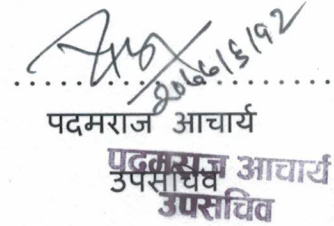 २०७७/६/१२
पदमराज आचार्य
उपसचिव
पदमराज आचार्य
उपसचिव